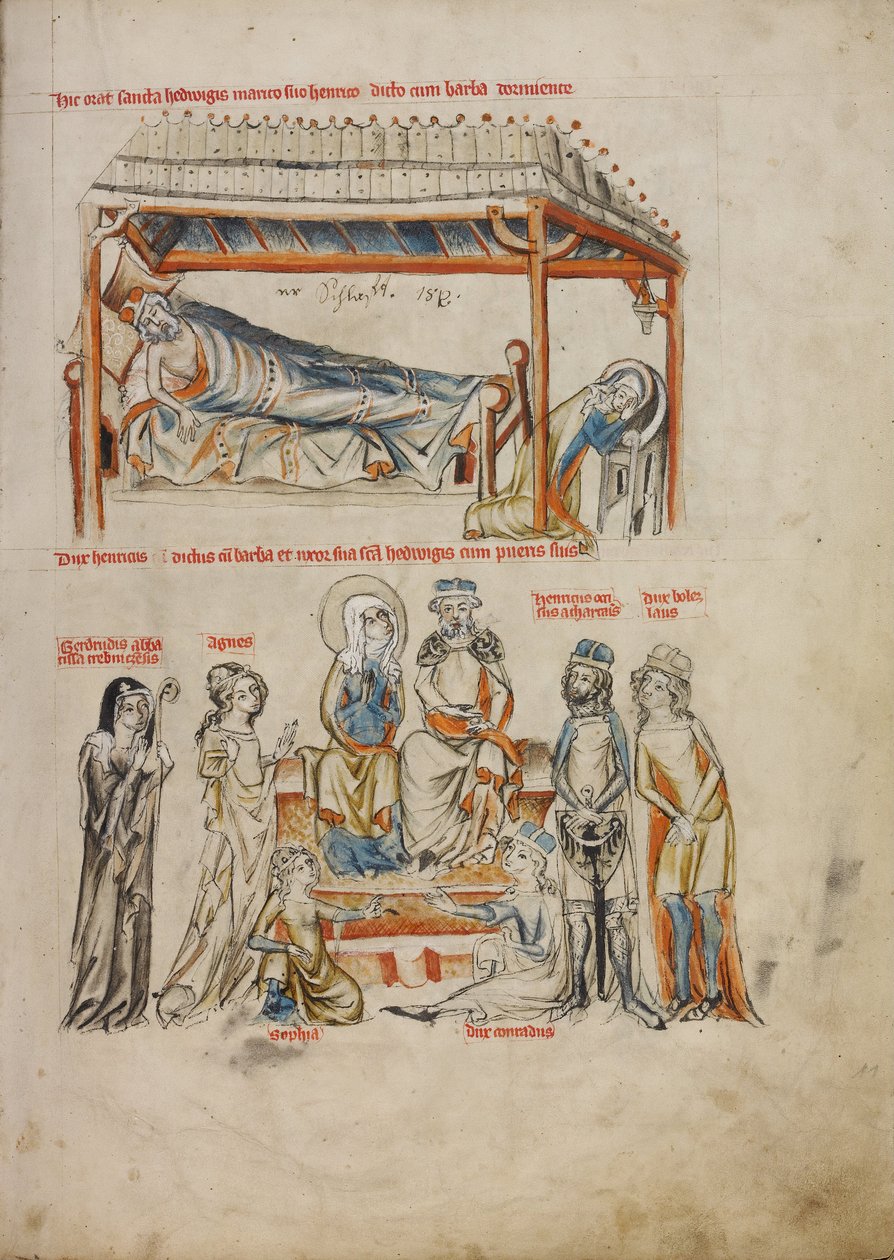 Hic orat sancta hedwigis marito suo henrico dicto cum barba dormiente
er Schlafft.
Dux henricus dictus cū barba et uxor sua scā hedwigis cum pueris suis
Gerdrudis abba
tissa trebniczēsis
Agnes
Henricus occi
sus a thartaris
dux bolez
laus
Sophia
dux conradus